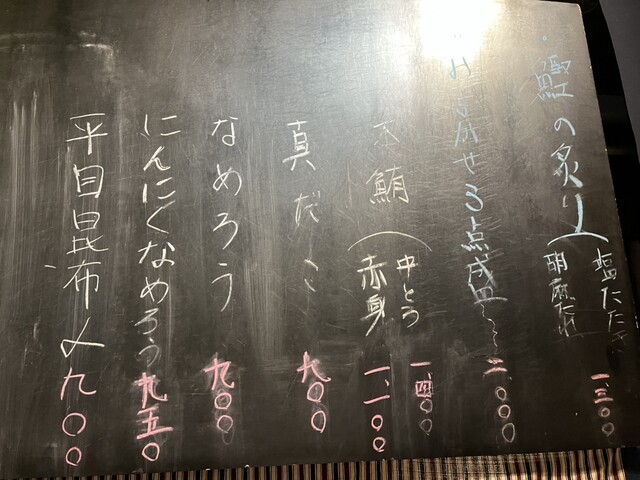 鰹の炙り(塩たたき
胡麻だれ
一、三〇〇
おまかせ3点盛〜 二、〇〇〇
本鮪(中とろ 一、四〇〇
赤身 一、一〇〇
真だこ 九〇〇
なめろう 九〇〇
にんにくなめろう 九五〇
平目昆布〆 九〇〇